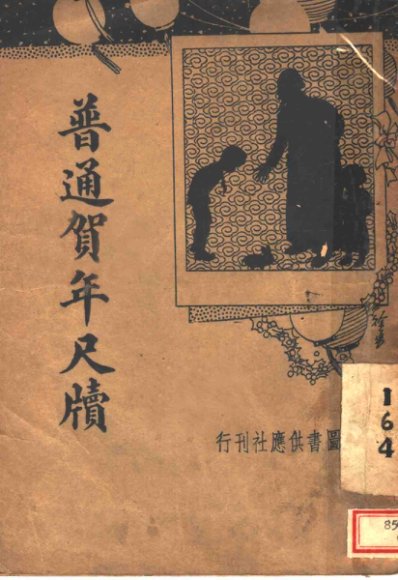 普通賀年尺牘
圖書供應社刊行
164
85